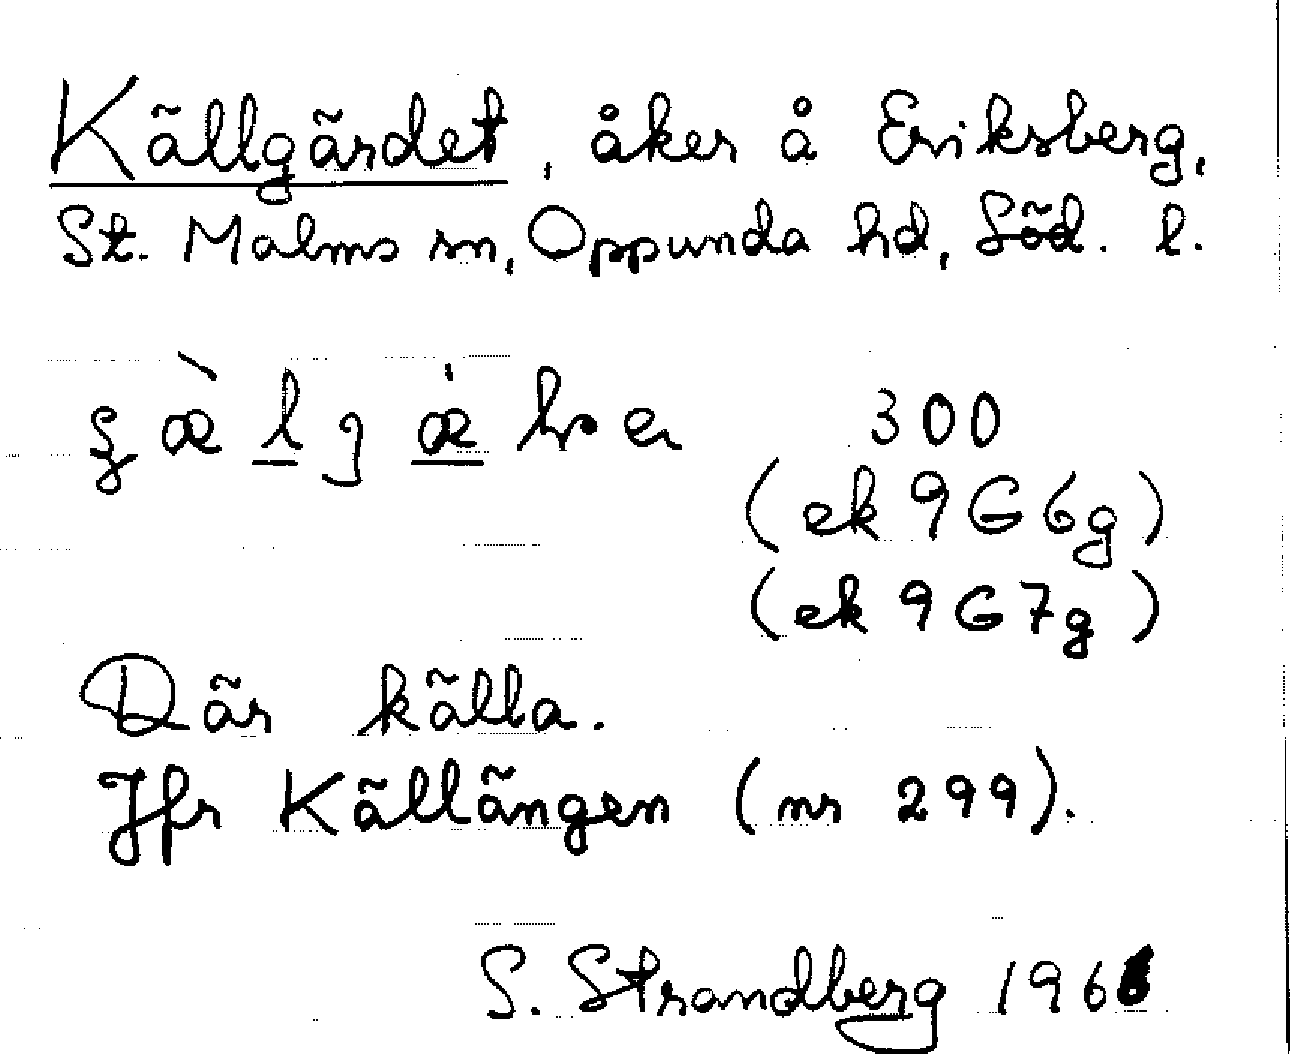 Källgärdet, åker å Eriksberg,
St. Malms sn, Oppunda hd, Söd. l.
300
(ek 9G6g)
(ek 9G7g)
Där källa.
Jfr Källängen (nr 299).
S. Strandberg